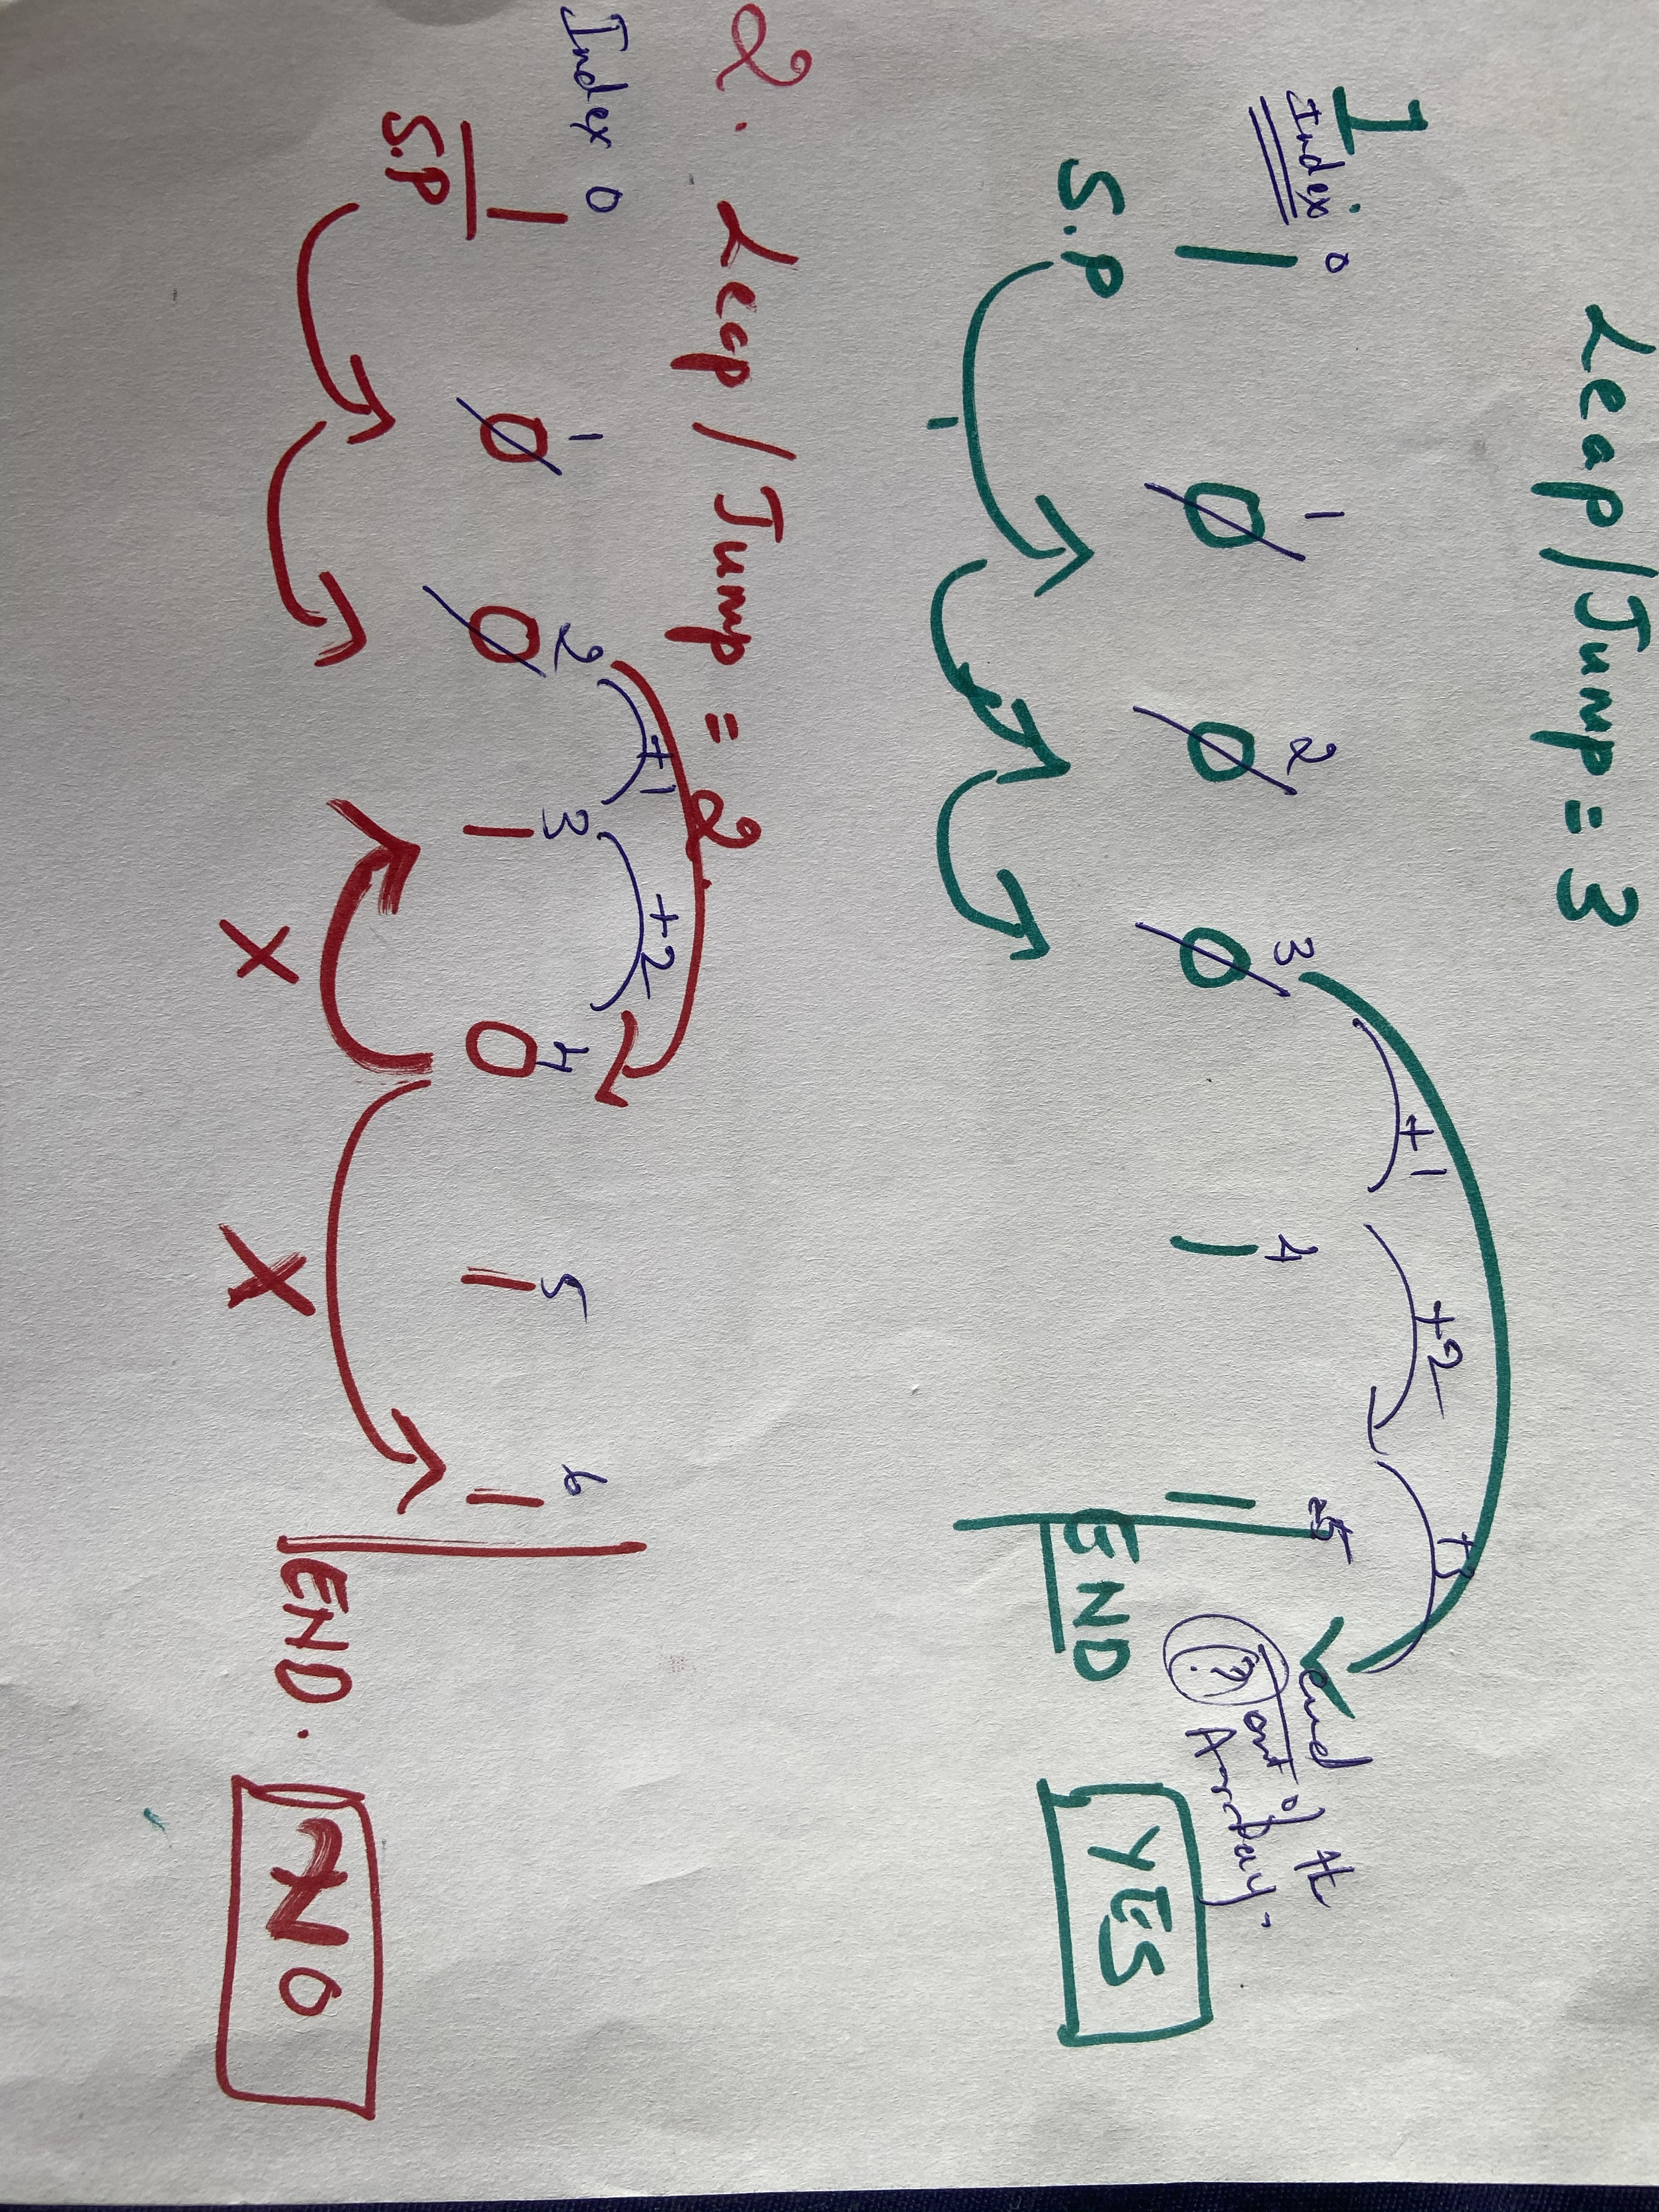 Leap/Jump = 3
1
Index 0 1 2 3 4 5
1 0 0 0 1 1
+1 +2 +3
S.P
1
END
end
out of the
Array.
(?)
YES
2. Leap/Jump = 2.
+1 +2
Index 0 1 2 3 4 5 6
1 0 0 1 0 1 1
S.P
X X
END.
NO